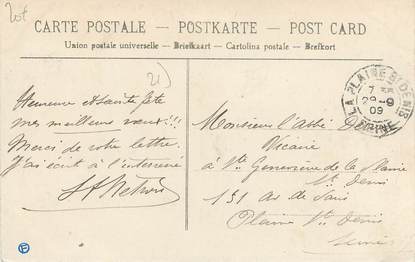 CARTE POSTALE – POSTKARTE – POST CARD
Union postale universelle – Briefkaart – Cartolina postale – Brefkort
LA PLAINE ST DENIS
7
29-9
09
SEINE
Heureuse et sainte fête
mes meilleurs vœux!!!
Merci de votre lettre.
J'ai écrit à
Monsieur l'Abbé
Vicaire
à Ste Geneviève de la Plaine
St Denis
131 Av de Paris
Plaine St Denis
Seine